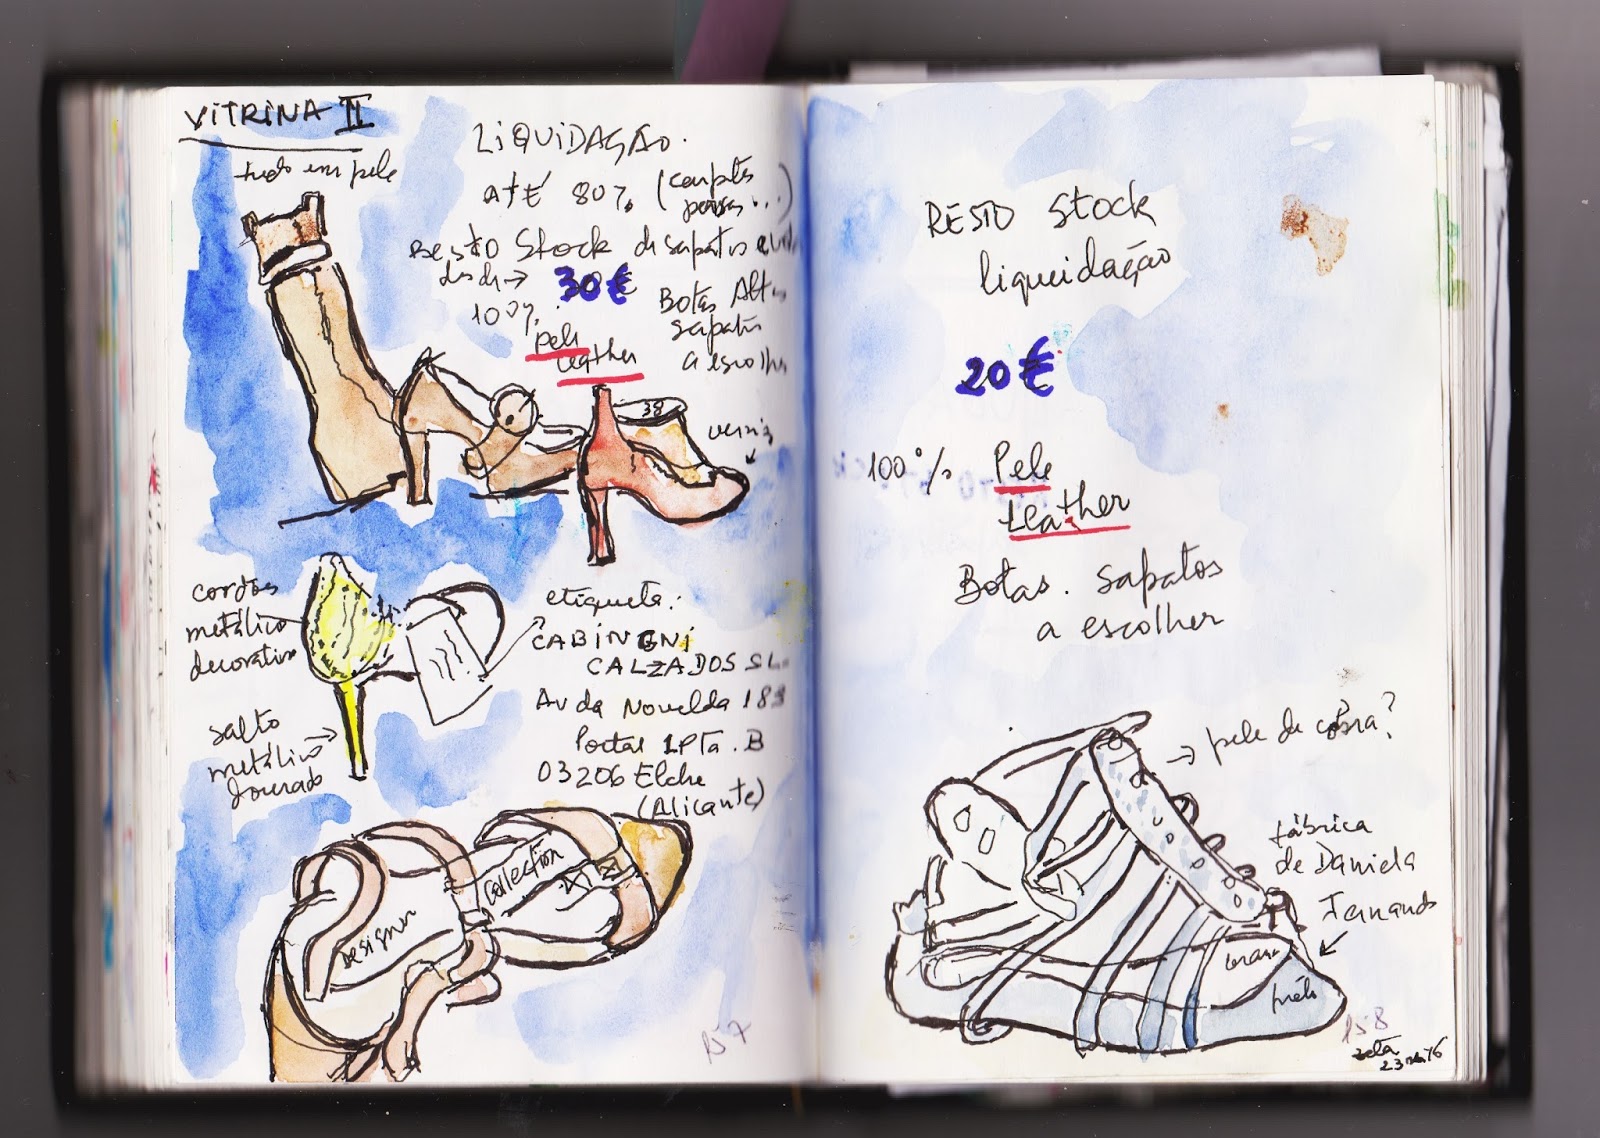 VITRINA II
tudo em pele
LIQUIDAÇÃO.
ATÉ 80%
RESTO Stock de sapatos
desde → 30€
Botas Altas
100%
sapatos
Pele
Leather
a escolher
38
verniz
cordões
metálico
decorativo
salto
metálico
dourado
etiqueta:
CABINGNI
CALZADOS SL.
Av da Novelda 189
Portal 1 PTa. B
03206 Elche
(Alicante)
Designer
Collection
157
RESTO Stock
liqueidação
20€
100% Pele
Leather
Botas. sapatos
a escolher
→ pele de cobra?
fábrica
de Daniela
Fernando
preto
158
zeta